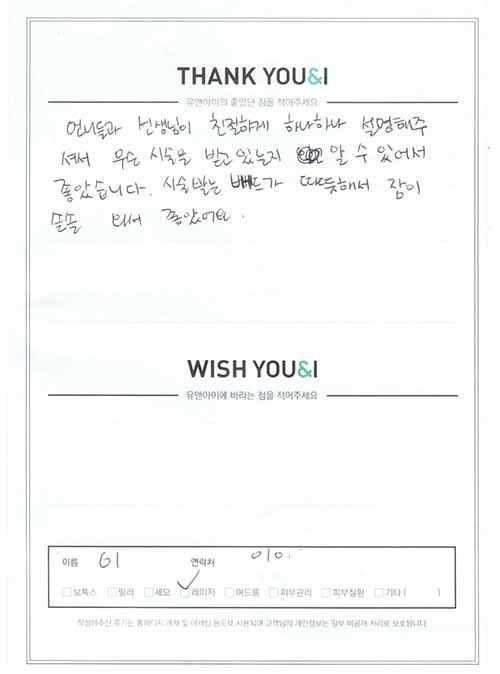 THANK YOU&I
유앤아이의 좋았던 점을 적어주세요
언니들과 선생님이 친절하게 하나하나 설명해주
셔서 무슨 시술을 받고있는지 알 수 있어서
좋았습니다. 시술받는 베드가 따뜻해서 잠이
솔솔 와서 좋았어요.
WISH YOU&I
유앤아이에 바라는 점을 적어주세요
이름 GI 연락처 010.
보톡스 필러 제모 레이저 여드름 피부관리 피부질환 기타 ( )
작성해주신 후기는 홈페이지 게재 및 마케팅 용도로 사용되며 고객님의 개인정보는 일부 비공개 처리로 보호됩니다.